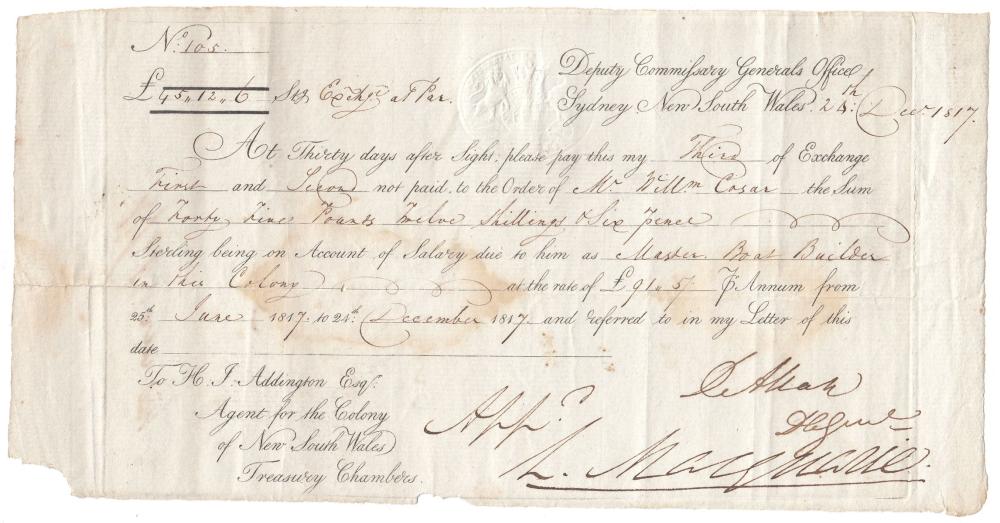 No. 105.
£ 45,, 12,, 6 Stg Exchge at Par.
Deputy Commiſsary Generals Office
Sydney New South Wales. 24th: Decr. 1817.
At Thirty days after Sight, please pay this my Third of Exchange
First and Second not paid, to the Order of Mr. Willm Cosar the Sum
of Forty Five Pounds Twelve Shillings & Six Pence
Sterling being on Account of Salary due to him as Master Boat Builder
in this Colony at the rate of £ 91,, 5/- ⅌ Annum from
25th: June 1817. to 24th: December 1817. and referred to in my Letter of this
date
To H. J. Addington Esqr:
Agent for the Colony
of New South Wales
Treasury Chambers.
D Allan
Appd.
L. Macquarie.